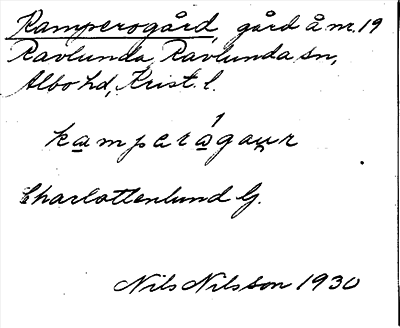 Kamperogård, gård å nr. 19
Ravlunda, Ravlunda sn,
Albo hd, Krist. l.
kamperágaur
Charlottenlund G.
Nils Nilsson 1930